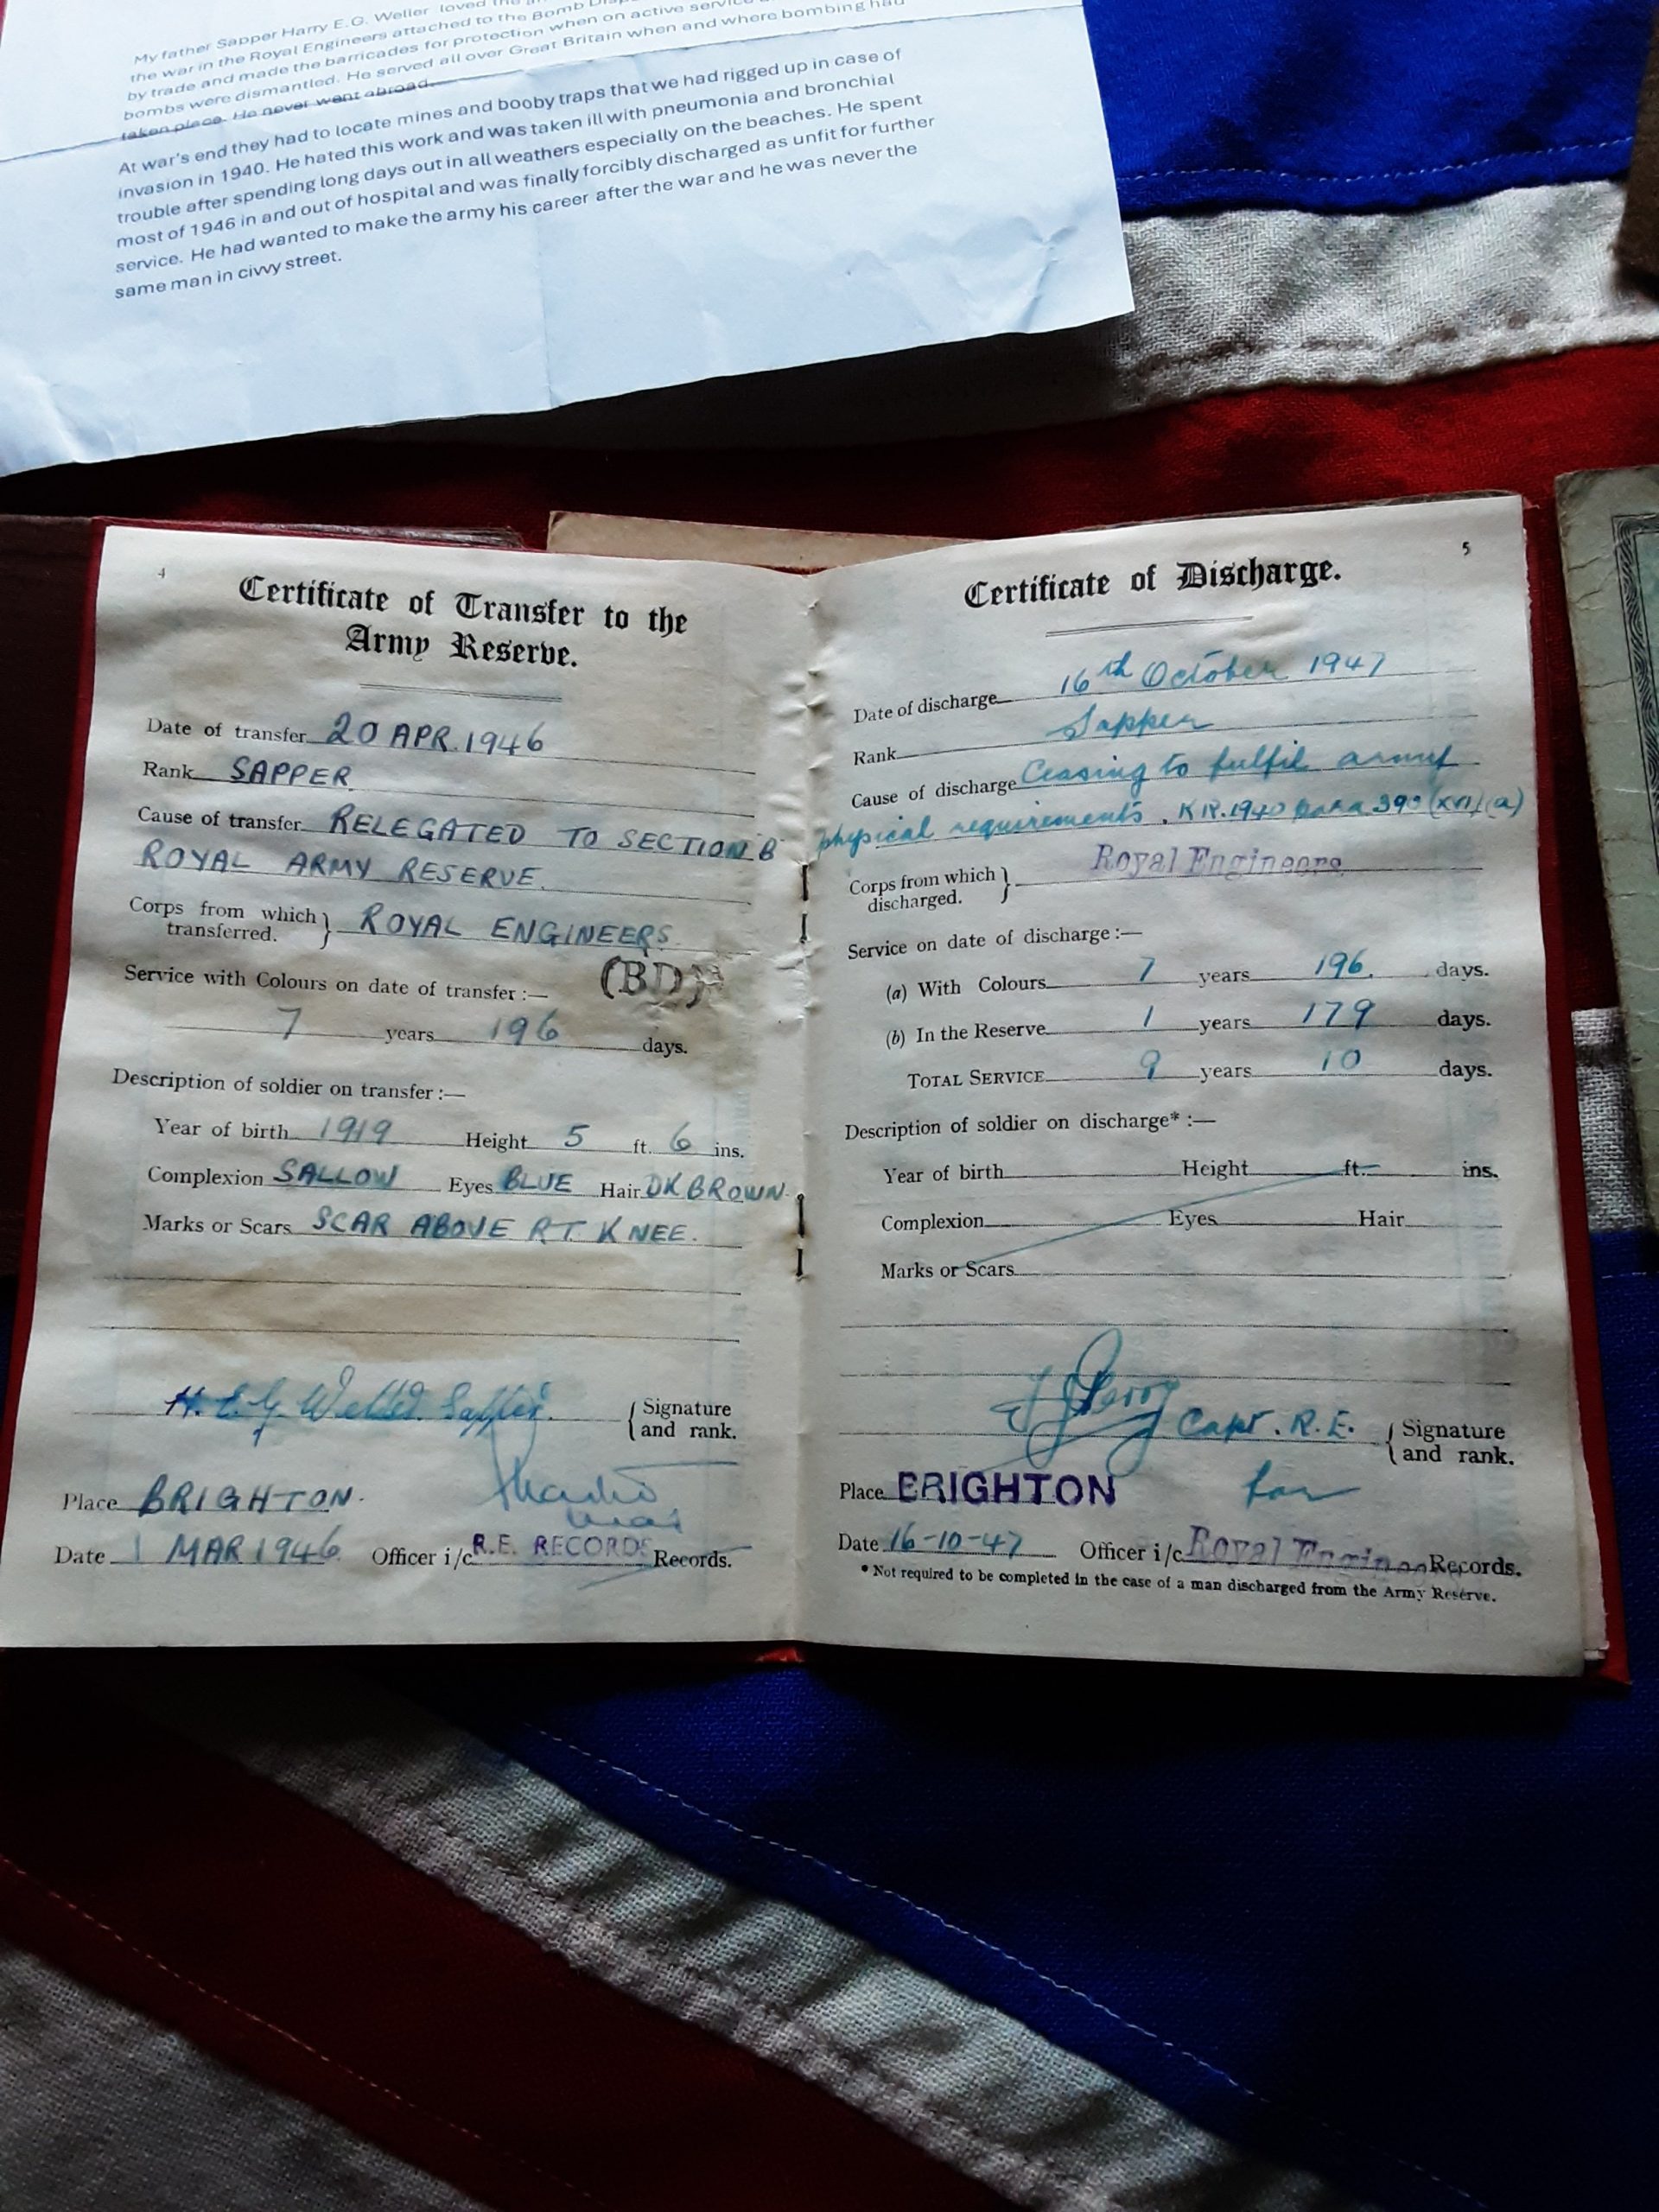 My father Sapper Harry E.G. Weller loved the
the war in the Royal Engineers attached to the Bomb
by trade and made the barricades for protection when on active service
bombs were dismantled. He served all over Great Britain when and where bombing had
taken place. He never went abroad.
At war's end they had to locate mines and booby traps that we had rigged up in case of
invasion in 1940. He hated this work and was taken ill with pneumonia and bronchial
trouble after spending long days out in all weathers especially on the beaches. He spent
most of 1946 in and out of hospital and was finally forcibly discharged as unfit for further
service. He had wanted to make the army his career after the war and he was never the
same man in civvy street.
4
Certificate of Transfer to the
Army Reserve.
Date of transfer 20 APR. 1946
Rank SAPPER
Cause of transfer RELEGATED TO SECTION B
ROYAL ARMY RESERVE.
Corps from which transferred. } ROYAL ENGINEERS
(BD)
Service with Colours on date of transfer :—
7 years 196 days.
Description of soldier on transfer :—
Year of birth 1919 Height 5 ft. 6 ins.
Complexion SALLOW Eyes BLUE Hair DK BROWN.
Marks or Scars SCAR ABOVE RT. KNEE.
H. E. G. Weller Sapper. { Signature and rank.
Place BRIGHTON.
Date 1 MAR 1946 Officer i/c R.E. RECORDS Records.
5
Certificate of Discharge.
Date of discharge 16th October 1947
Rank Sapper
Cause of discharge Ceasing to fulfil army
physical requirements. KR. 1940 para 390 (xvi) (a)
Corps from which discharged. } Royal Engineers
Service on date of discharge :—
(a) With Colours 7 years 196. days.
(b) In the Reserve 1 years 179 days.
TOTAL SERVICE 9 years 10 days.
Description of soldier on discharge* :—
Year of birth Height ft. ins.
Complexion Eyes Hair
Marks or Scars
Capt. R.E. { Signature and rank.
Place BRIGHTON for
Date 16-10-47 Officer i/c Royal Engineer Records.
* Not required to be completed in the case of a man discharged from the Army Reserve.